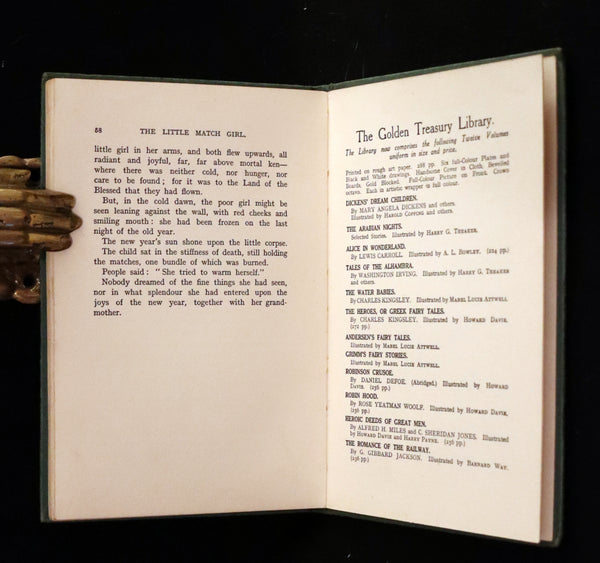 58 THE LITTLE MATCH GIRL.
little girl in her arms, and both flew upwards, all
radiant and joyful, far, far above mortal ken—
where there was neither cold, nor hunger, nor
care to be found; for it was to the Land of the
Blessed that they had flown.
But, in the cold dawn, the poor girl might be
seen leaning against the wall, with red cheeks and
smiling mouth: she had been frozen on the last
night of the old year.
The new year's sun shone upon the little corpse.
The child sat in the stiffness of death, still holding
the matches, one bundle of which was burned.
People said: "She tried to warm herself."
Nobody dreamed of the fine things she had seen,
nor in what splendour she had entered upon the
joys of the new year, together with her grand-
mother.
The Golden Treasury Library.
The Library now comprises the following Twelve Volumes
uniform in size and price.
Printed on rough art paper. 288 pp. Six full-Colour Plates and
Black and White drawings. Handsome Cover in Cloth, Bevelled
Boards, Gold Blocked. Full-Colour Picture on Front. Crown
octavo. Each in artistic wrapper in full colour.
DICKENS' DREAM CHILDREN.
By MARY ANGELA DICKENS and others.
Illustrated by HAROLD COPPING and others.
THE ARABIAN NIGHTS.
Selected Stories. Illustrated by HARRY G. THEAKER
ALICE IN WONDERLAND.
By LEWIS CARROLL. Illustrated by A. L. BOWLEY. (224 pp.)
TALES OF THE ALHAMBRA.
By WASHINGTON IRVING. Illustrated by HARRY G. THEAKER
and others.
THE WATER BABIES.
By CHARLES KINGSLEY. Illustrated by MABEL LUCIE ATTWELL
THE HEROES, OR GREEK FAIRY TALES.
By CHARLES KINGSLEY. Illustrated by HOWARD DAVIE.
(272 pp.)
ANDERSEN'S FAIRY TALES.
Illustrated by MABEL LUCIE ATTWELL.
GRIMM'S FAIRY STORIES.
Illustrated by MABEL LUCIE ATTWELL.
ROBINSON CRUSOE.
By DANIEL DEFOE. (Abridged.) Illustrated by HOWARD
DAVIE. (256 pp.)
ROBIN HOOD.
By ROSE YEATMAN WOOLF. Illustrated by HOWARD DAVIE.
(256 pp.)
HEROIC DEEDS OF GREAT MEN.
By ALFRED H. MILES and C. SHERIDAN JONES. Illustrated
by HOWARD DAVIE and HARRY PAYNE. (256 pp.)
THE ROMANCE OF THE RAILWAY.
By G. GIBBARD JACKSON. Illustrated by BARNARD WAY.
(256 pp.)